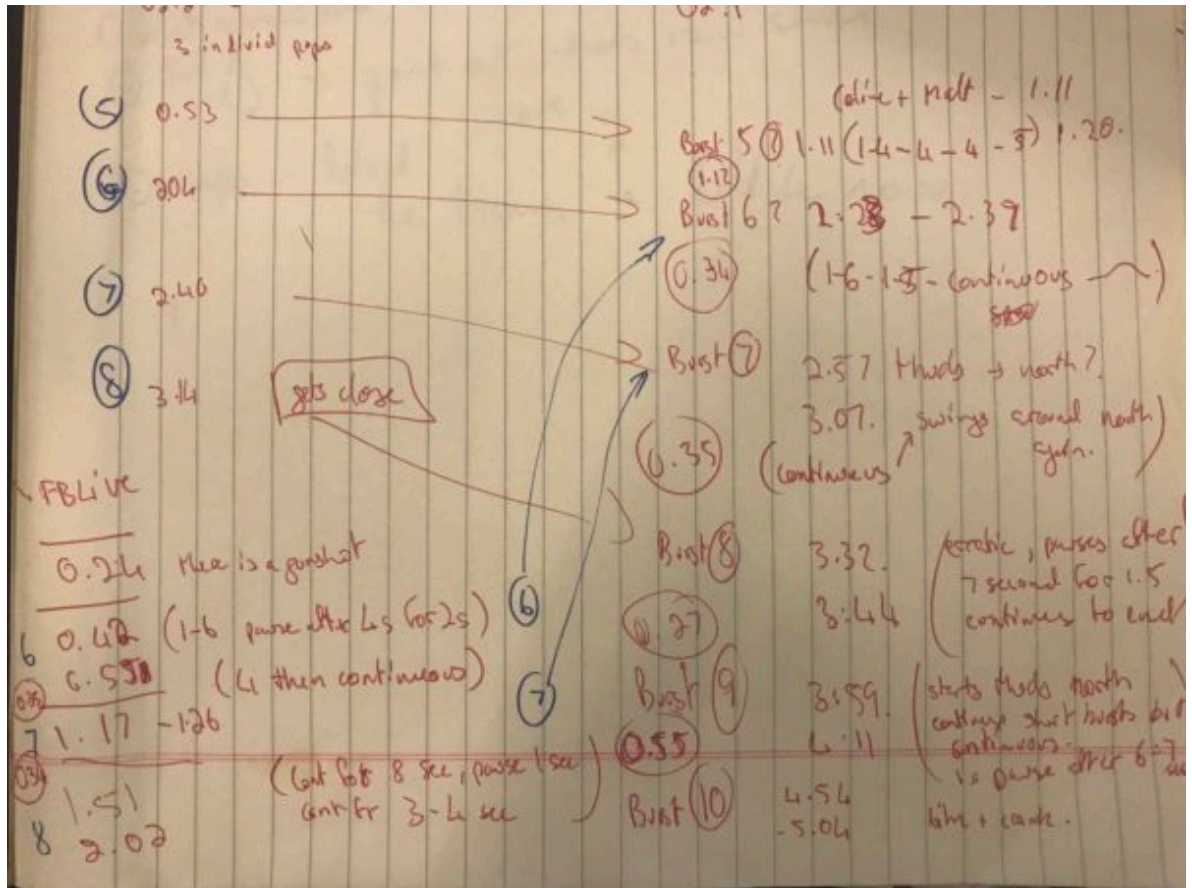 3 individ pops
(5) 0.53
(6) 204
(7) 2.40
(8) 3.14
gets close
FBLive
0.24 there is a gunshot
6 0.42 (1-6 pause after 4s for 2s)
(4 then continuous)
7 1.17 - 1.26
0.34
1.51
8 2.02
(Cont for 8 sec, pause 1 sec
cont for 3-4 sec)
(6)
(7)
02.1
- 1.11
Burst 5 (?) 1.11 (1-4-4-4-5) 1.20.
1.12
Burst 6? 2.28 - 2.39
0.34 (1-6-1-5-continuous
Burst (7) 2.57 thuds → north?
0.35 3.07. swings around north
(continuous again.)
Burst (8) 3.32. (erratic, pauses after
7 second for 1.5
0.27 3:44 continues to end
Burst (9) 3:59. (starts thuds north
continuous short bursts but
0.55 4.11 continuous.
1s pause after 6-7 sec
Burst (10) 4.54
-5.04